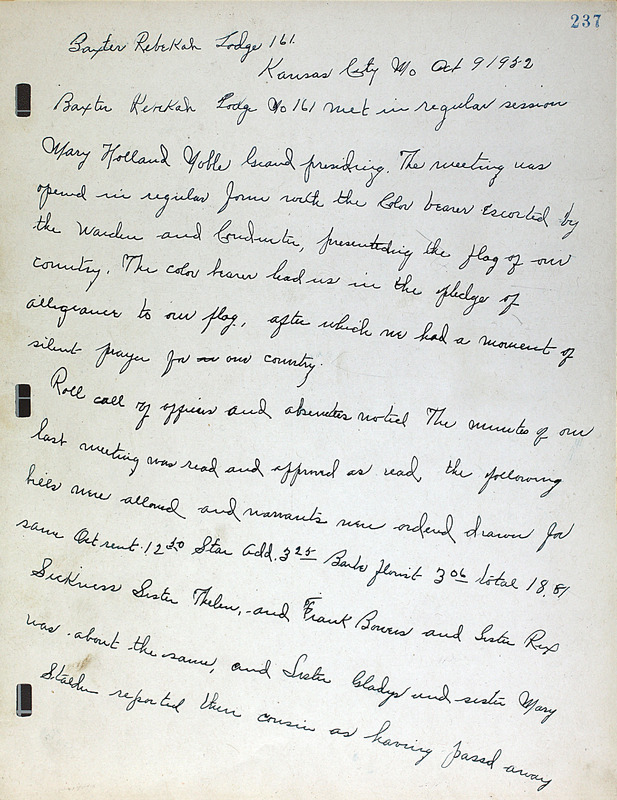 237
Baxter Rebekah Lodge 161.
Kansas City Mo Oct 9 1952
Baxter Rebekah Lodge No 161 met in regular session
Mary Holland Noble Grand presiding. The meeting was
opened in regular form with the Color bearer escorted by
the Warden and Conductor, presentding the flag of our
country. The color bearer lead us in the pledge of
allegiance to our flag, after which we had a moment of
silent prayer for our country.
Roll call of officers and absentees noted The minutes of our
last meeting was read and approved as read, the following
bills were allowed and warrants were ordered drawn for
same Oct rent. 12 50 Star Add. 3 25 Barbe florist 3 06 total 18.81
Sickness Sister Thelen, and Frank Bowers and Sister Rex
was about the same, and Sister Gladys and sister Mary
reported their cousin as having passed away